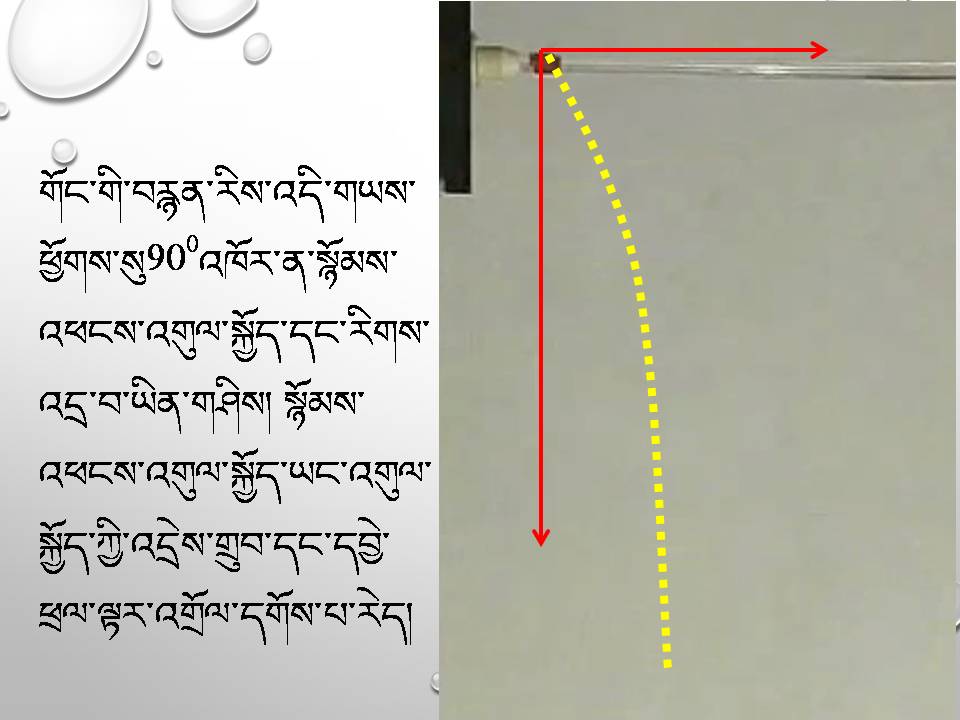 གོང་གི་བརྙན་རིས་འདི་གཡས་
ཕྱོགས་སུ90⁰འཁོར་ན་སྙོམས་
འཕངས་འགུལ་སྐྱོད་དང་རིགས་
འདྲ་བ་ཡིན་གཤིས། སྙོམས་
འཕངས་འགུལ་སྐྱོད་ཡང་འགུལ་
སྐྱོད་ཀྱི་འདྲེས་གྲུབ་དང་དབྱེ་
ཕྲལ་ལྟར་འགྲོལ་དགོས་པ་རེད།